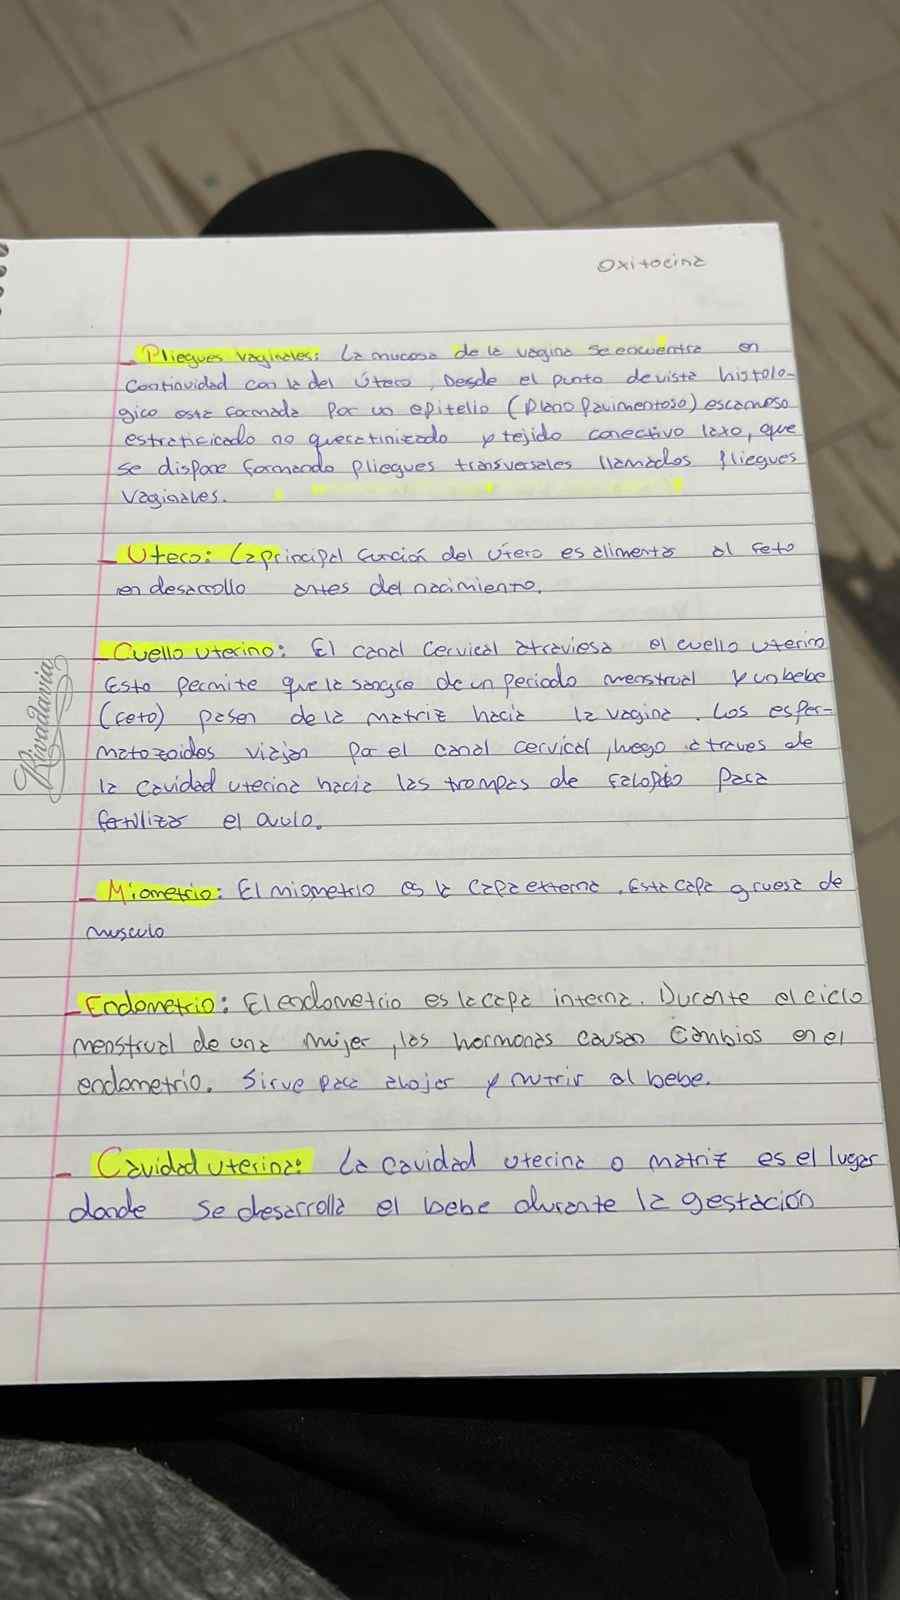 Oxitocina
- Pliegues vaginales: La mucosa de la vagina se encuentra en
continuidad con la del Útero, Desde el punto de vista histolo-
gico esta formada por un epitelio (plano pavimentoso) escamoso
estratificado no queratinizado y tejido conectivo laxo, que
se dispone formando pliegues transversales llamados pliegues
vaginales.
- Utero: La principal función del útero es alimentar al feto
en desarrollo antes del nacimiento.
- Cuello uterino: El canal cervical atraviesa el cuello uterino
Esto permite que la sangre de un periodo menstrual y un bebe
(feto) pasen de la matriz hacia la vagina. Los esper-
matozoides viajan por el canal cervical, luego a traves de
la cavidad uterina hacia las trompas de falopio para
fertilizar el ovulo.
- Miometrio: El miometrio es la capa externa. Esta capa gruesa de
musculo
- Endometrio: El endometrio es la capa interna. Durante el ciclo
menstrual de una mujer, las hormonas causan cambios en el
endometrio. Sirve para alojar y nutrir al bebe.
- Cavidad uterina: La cavidad uterina o matriz es el lugar
donde se desarrolla el bebe durante la gestación
Rivadavia